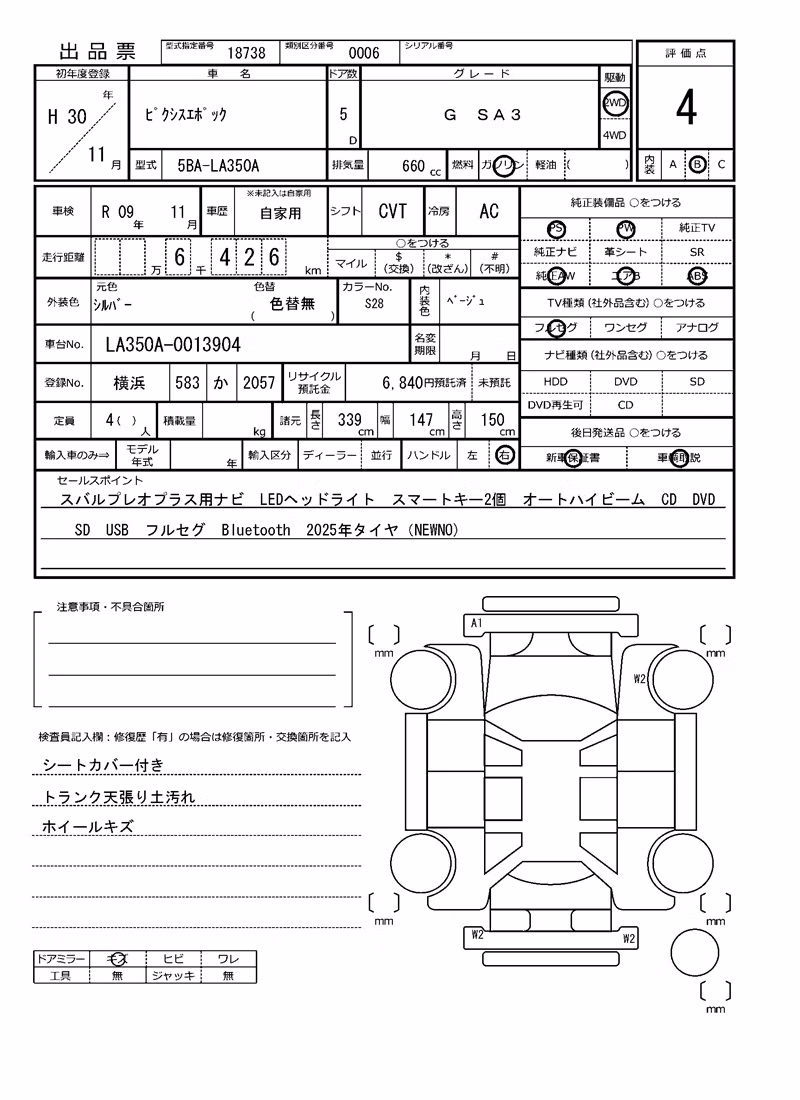 出品票 型式指定番号 18738 類別区分番号 0006 シリアル番号
初年度登録 車名 ドア数 グレード 駆動 評価点
H 30 年 11 月 ﾋﾟｸｼｽｴﾎﾟｯｸ 5 D G SA3 2WD 4WD 4
型式 5BA-LA350A 排気量 660 cc 燃料 ガソリン 軽油 ( ) 内装 A B C
車検 R 09 年 11 月 車歴 ※未記入は自家用 自家用 シフト CVT 冷房 AC
走行距離 万 6 千 4 2 6 km ○をつける
マイル $ (交換) * (改ざん) # (不明)
外装色 元色 ｼﾙﾊﾞｰ 色替 ( 色替無 ) カラーNo. S28 内装色 ﾍﾞｰｼﾞｭ
車台No. LA350A-0013904 名変期限 月 日
登録No. 横浜 583 か 2057 リサイクル預託金 6,840円預託済 未預託
定員 4( ) 人 積載量 kg 諸元 長さ 339 cm 幅 147 cm 高さ 150 cm
輸入車のみ⇒ モデル年式 年 輸入区分 ディーラー 並行 ハンドル 左 右
純正装備品 ○をつける
PS PW 純正TV
純正ナビ 革シート SR
純正AW エアB ABS
TV種類(社外品含む) ○をつける
フルセグ ワンセグ アナログ
ナビ種類(社外品含む) ○をつける
HDD DVD SD
DVD再生可 CD
後日発送品 ○をつける
新車保証書 車輌取説
セールスポイント
スバルプレオプラス用ナビ LEDヘッドライト スマートキー2個 オートハイビーム CD DVD
SD USB フルセグ Bluetooth 2025年タイヤ（NEWNO）
注意事項・不具合箇所
検査員記入欄：修復歴「有」の場合は修復箇所・交換箇所を記入
シートカバー付き
トランク天張り土汚れ
ホイールキズ
ドアミラー キズ ヒビ ワレ
工具 無 ジャッキ 無
A1
mm mm
W2
mm mm
W2 W2
mm